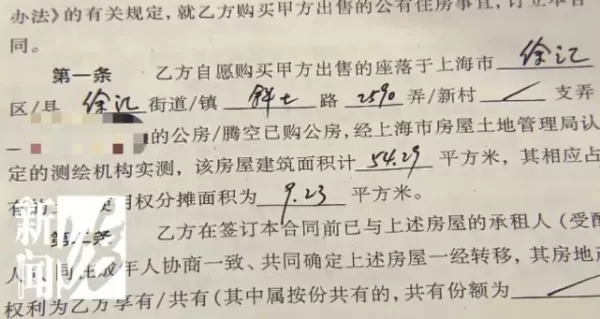 办法》的有关规定，就乙方购买甲方出售的公有住房事宜，订立本合
同。
第一条 乙方自愿购买甲方出售的座落于上海市 徐汇
区/县 徐汇 街道/镇 斜土 路 2590 弄/新村 / 支弄
的公房/腾空已购公房，经上海市房屋土地管理局认
定的测绘机构实测，该房屋建筑面积计 54.29 平方米，其相应占
有的 使用权分摊面积为 9.23 平方米。
第二条 乙方在签订本合同前已与上述房屋的承租人（受配
人 同住成年人协商一致、共同确定上述房屋一经转移，其房地产
权利为乙方享有/共有(其中属按份共有的，共有份额为 /
新闻